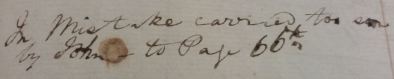 In Mistake carried too on
by John to Page 66th